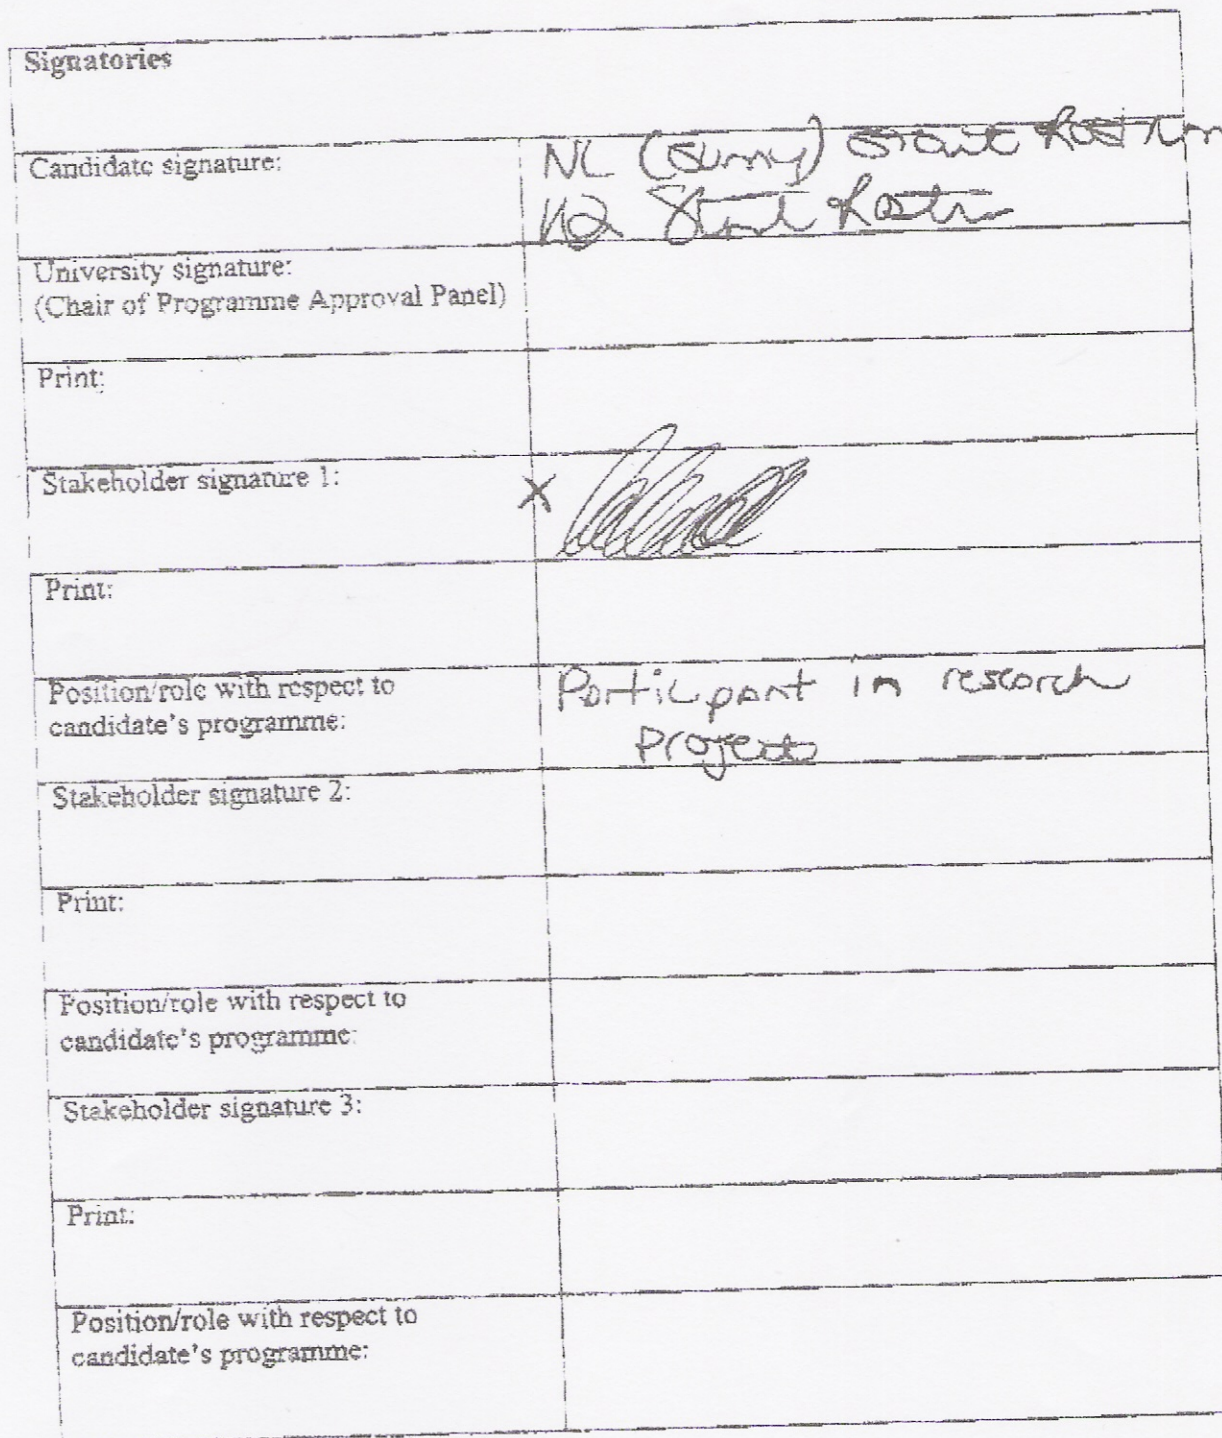 Signatories
Candidate signature:
NL (Sunny)
University signature:
(Chair of Programme Approval Panel)
Print:
Stakeholder signature 1:
X
Print:
Position/role with respect to
candidate's programme:
Participant in research
Projects
Stakeholder signature 2:
Print:
Position/role with respect to
candidate's programme:
Stakeholder signature 3:
Print:
Position/role with respect to
candidate's programme: